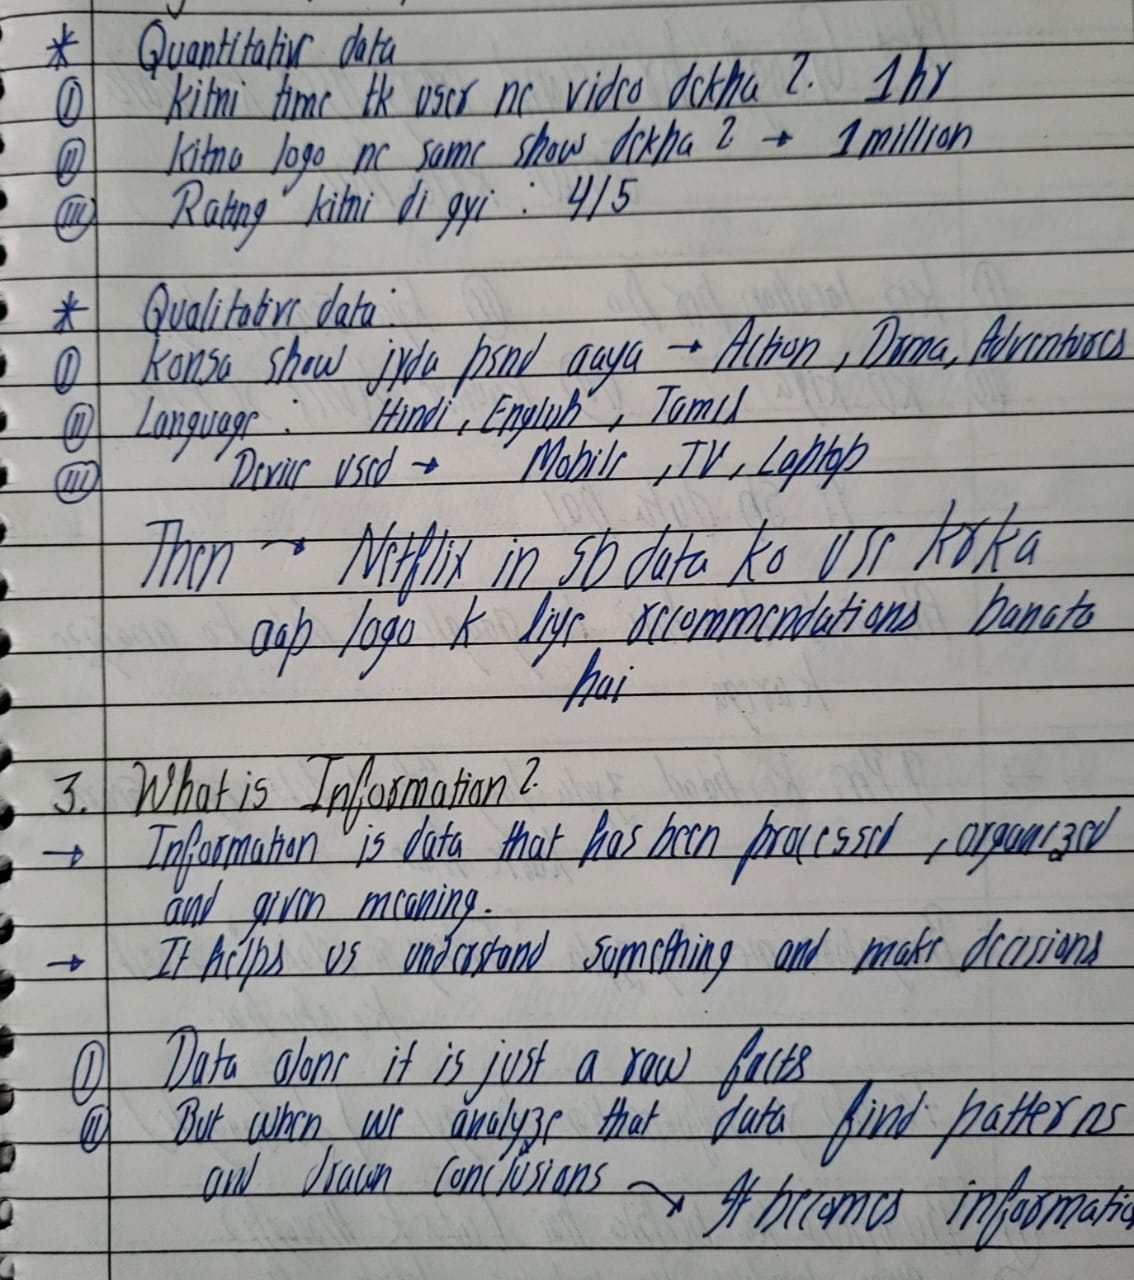 * Quantitative data
(i) kitni time tk user ne video dekha ? 1 hr
(ii) kitna logo ne same show dekha ? → 1 million
(iii) Rating kitni di gyi : 4/5
* Qualitative data :
(i) konsa show jyda psnd aaya → Action , Drma, Adventures
(ii) Language : Hindi , English , Tamil
(iii) Device used → Mobile , TV , Laptop
Then → Netflix in sb data ko use krka
aap logo k liye recommendations banata
hai
3. What is Information ?
→ Information is data that has been processed , organized
and given meaning.
→ It helps us understand something and make decisions
(i) Data alone it is just a raw facts
(ii) But when we analyze that data find patterns
and drawn conclusions → It becomes informatio